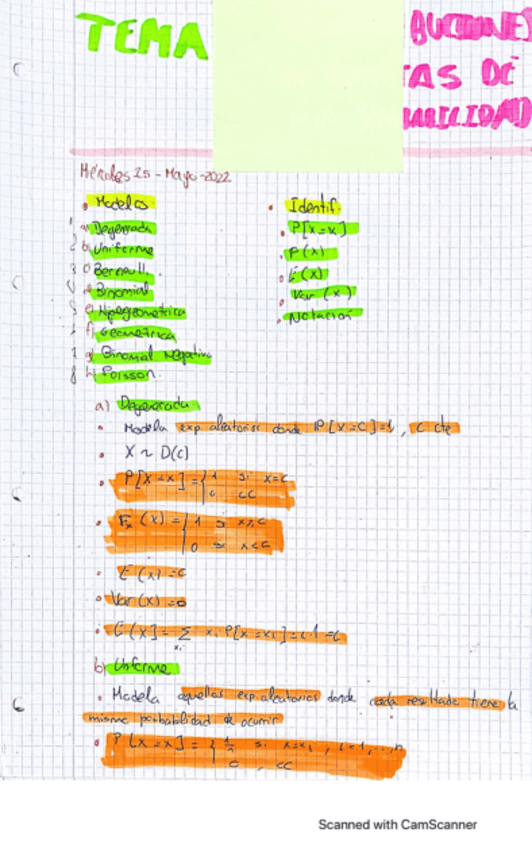 TEMA
BUCIONES
TAS DE
ABILIDAD
Mércoles 25 - Mayo - 2022
• Modelos:
a) Degenerada
b) Uniforme
c) Bernoulli.
d) Binomial
e) Hipergeometrica
f) Geometrica
g) Binomial Negativa
h) Poisson.
• Identif.
• P[X=x]
• F(x)
• E(x)
• Var(x)
• Notación
a) Degenerada:
• Modela exp. aleatorios donde P[X=C]=1, C cte
• X ~ D(c)
• P[X=x] = { 1 si x=c
0 cc
• Fx(x) = { 1 si x≥c
0 si x<c
• E(x)=c
• Var(x)=0
• E[X] = Σ xi P[X=xi] = c·1 = c
xi
b) Uniforme
• Modela aquellos exp. aleatorios donde cada resultado tiene la
misma probabilidad de ocurrir
• P[X=x] = { 1/n si x=xi, i=1,...,n
0, cc
Scanned with CamScanner